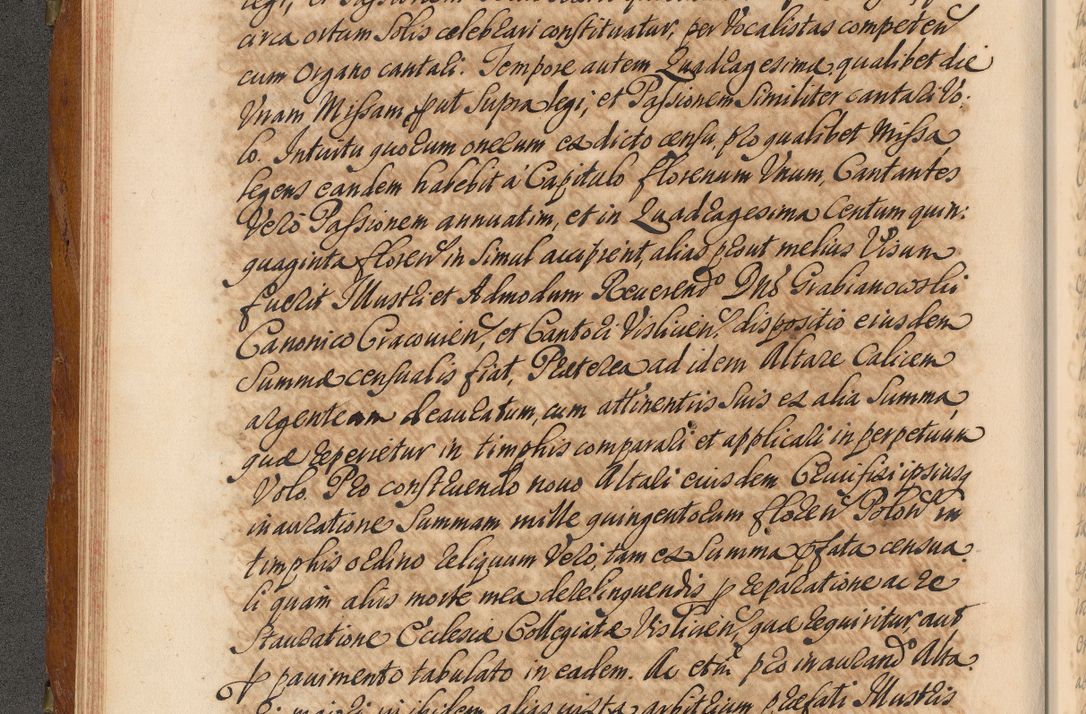 circa ortum Solis celebrari constituatur, per Vocalistas competen
cum Organo cantari. Tempore autem Quadragesimæ, qualibet die
Unam Missam, prout Supra legi, et Passionem Similiter cantari Vo-
lo. Intuitu quorum onerum ex dicto censu, pro qualibet Missa
legens eandem habebit á Capitulo florenum Unum, Cantantes
Veró Passionem annuatim, et in Quadragesima Centum quin:
quaginta floren in Simul accipient, alias prout melius Visum
fuerit Illustri et Admodum Reverendo Dno Grabianowski
Canonico Cracovien, et Cantori Vislicien, dispositio eiusdem
Summæ censualis fiat, Præterea ad idem Altare Calicem
argenteum deauratum, cum attinentiis Suis ex alia Summa,
quæ reperietur in timphis comparari et applicari in perpetuum
Volo. Pro construendo novo Altari eiusdem Crucifixi ipsiusq
inauratione Summam mille quingentorum floren Polon in
timphis ordino reliquum Veró, tam ex Summa pfata censua-
li quam aliis morte mea derelinquendis p reparatione ac re
stauratione Ecclesiæ Collegiatæ Vislicien, quæ requiritur aut
p pavimento tabulato in eadem. Ac etm pro inaurando Alta
alias iuxta arbitrium præfati Illustris